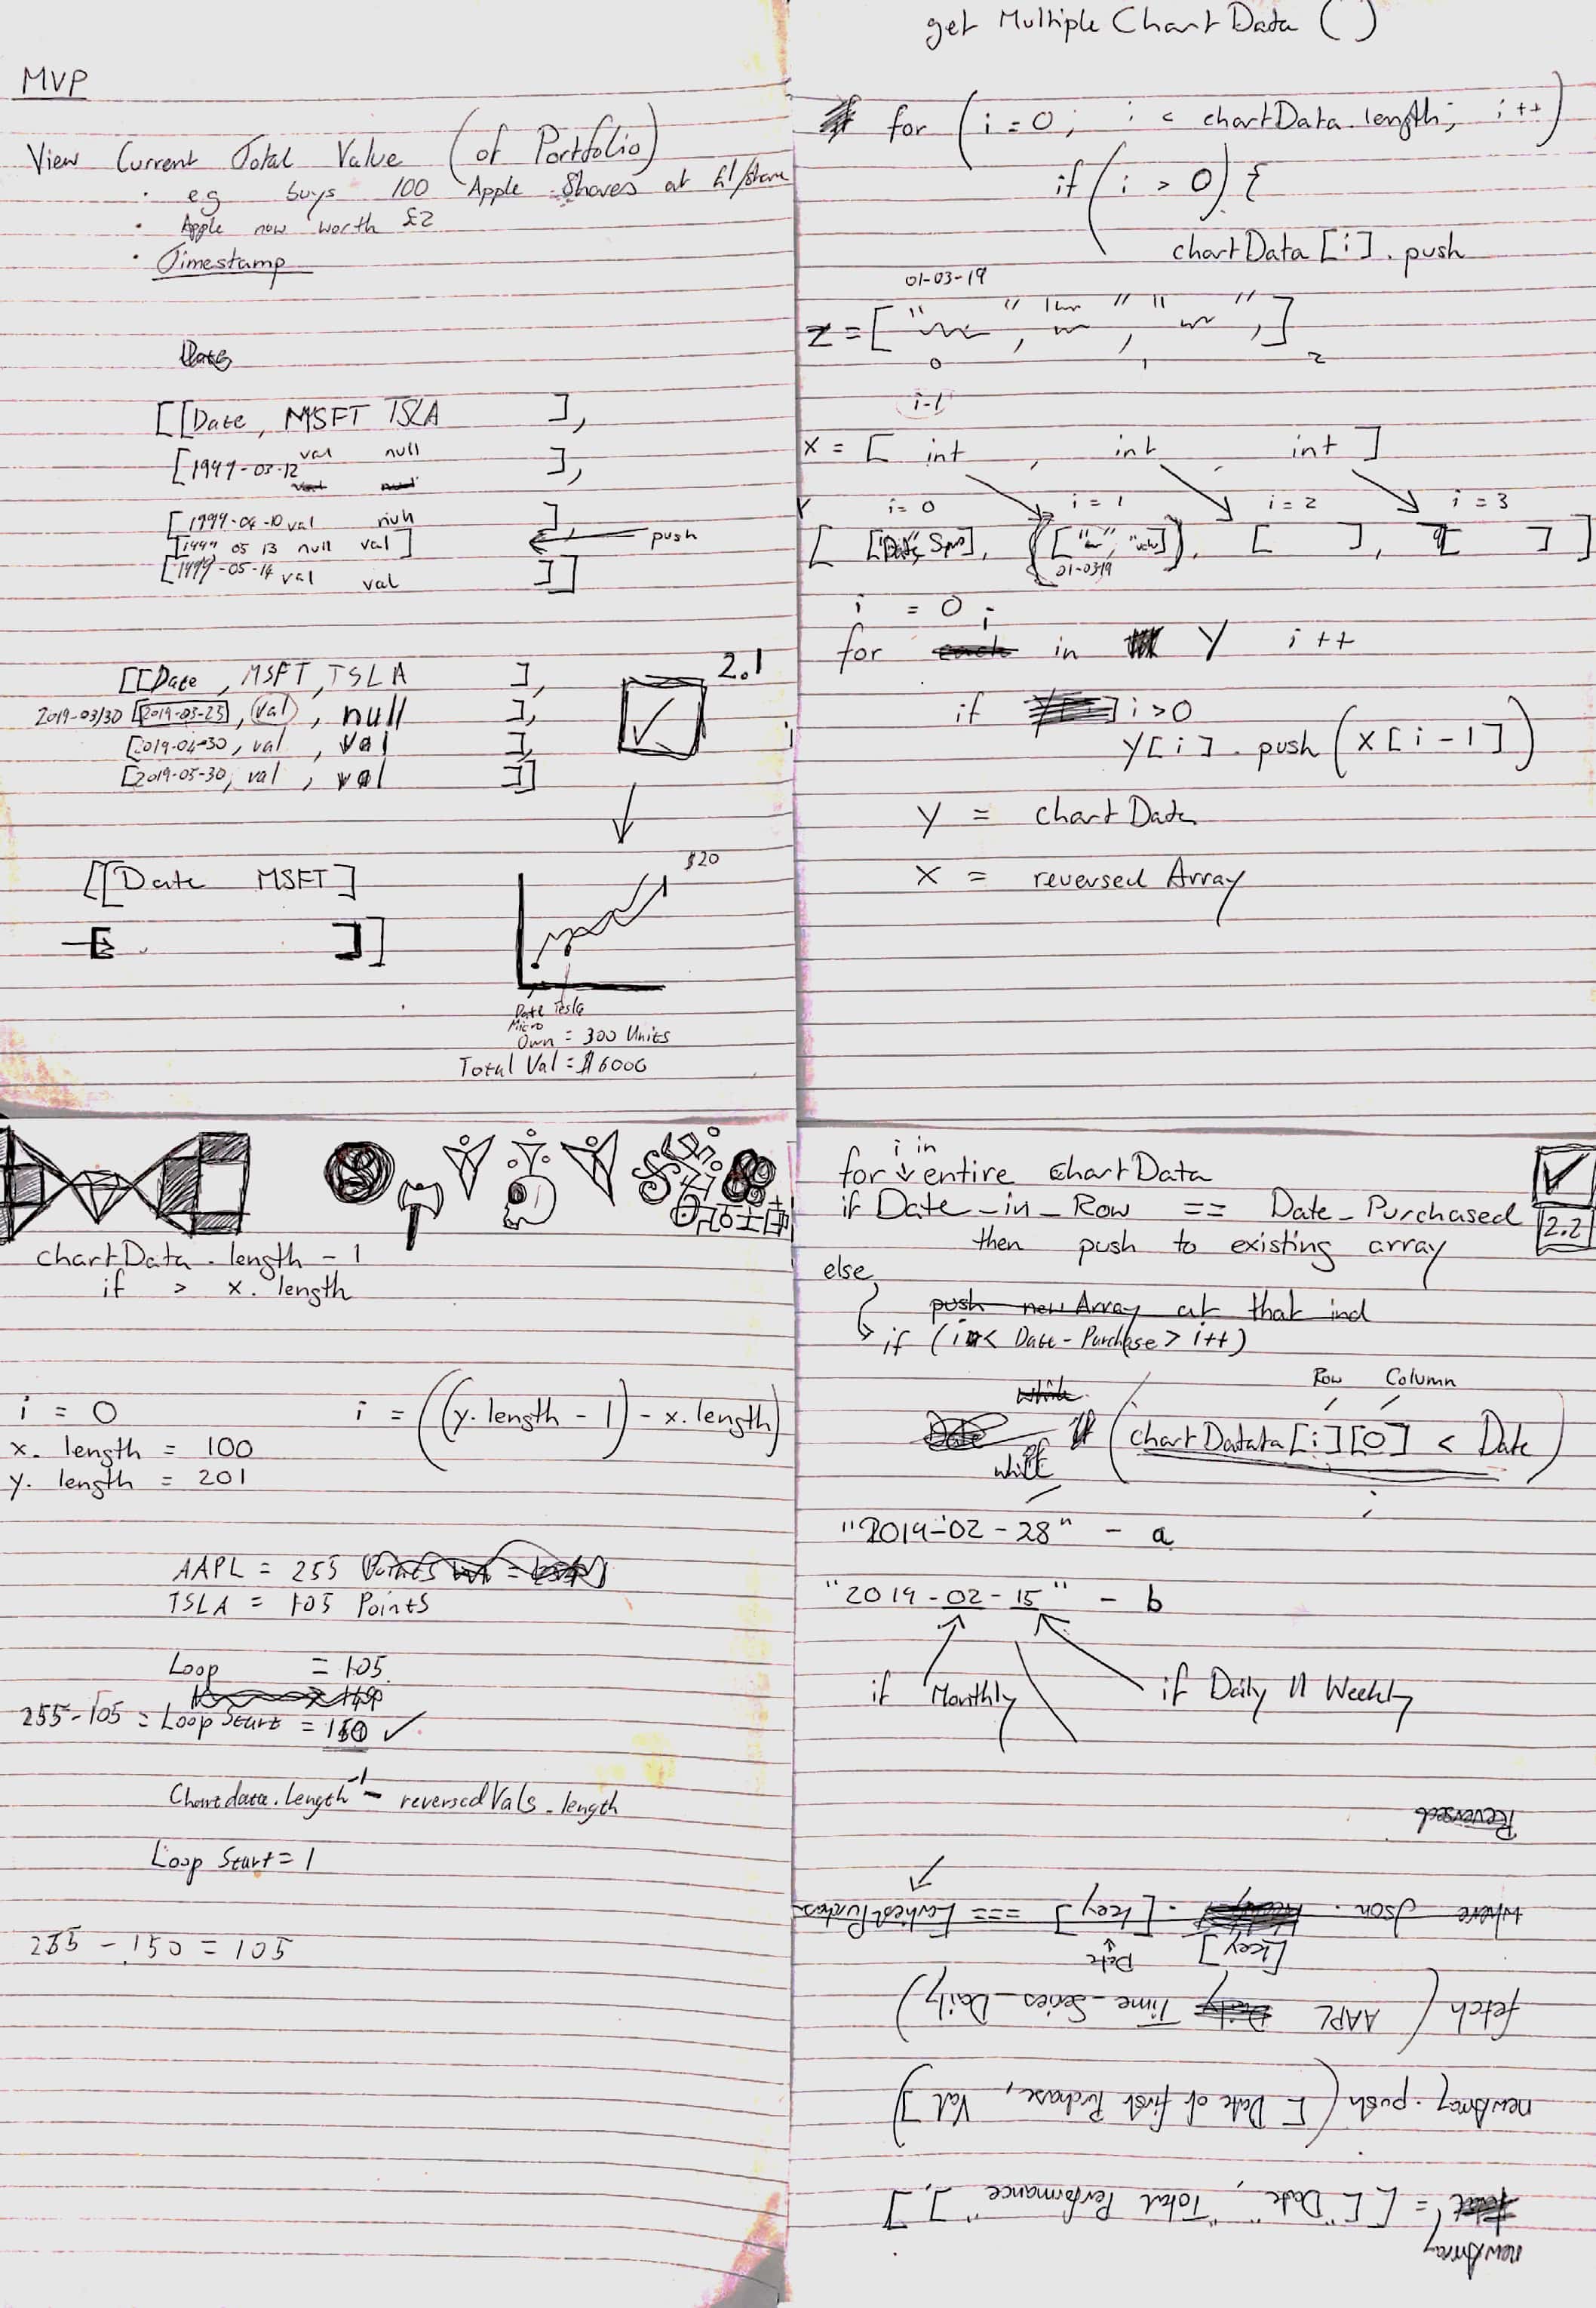 MVP
View Current Total Value (of Portfolio)
· eg buys 100 Apple Shares at £1/share
· Apple now worth £2
· Timestamp
Date
[[Date, MSFT TSLA ],
[1999-03-12 val null ],
val null
[1999-04-10 val null ],
[1999 05 13 null val] push
[1999-05-14 val val ]]
2.1
[[Date, MSFT, TSLA ],
2019-03/30 [2019-03-25], val, null ],
[2019-04-30, val, val ],
[2019-05-30, val, val ]]
[[Date MSFT]
[ ]]
$20
Date Tesla
Micro
Own = 300 Units
Total Val = $6000
get Multiple Chart Data ()
for (i = 0; i < chartData.length; i++)
if (i > 0) {
chartData [i] . push
01-03-19
z = [ " " , " " , " " , ]
0 1 2
i-1
x = [ int , int , int ]
Y i = 0 i = 1 i = 2 i = 3
[ ["Date", ], ([" ", " "]), [ ], [ ] ]
01-0319
i = 0 ;
for each in Y i++
if i>0
Y[i] . push (X[i-1])
Y = chart Data
X = reversed Array
chartData . length - 1
if > x. length
i = 0
x. length = 100
y. length = 201
i = ((y. length - 1) - x. length)
AAPL = 255
TSLA = 105 Points
Loop = 105
255-105 = Loop Start = 150 ✓
Chartdata.length -1 - reversedVals.length
Loop Start = 1
255 - 150 = 105
i in
for ↓ entire chartData
if Date_in_Row == Date_Purchased
2.2
then push to existing array
else
push new Array at that ind
if (i < Date-Purchase > i++)
Row Column
while
Date if (chartDatata[i][0] < Date)
while
"2019-02-28" - a
"2019-02-15" - b
if Monthly if Daily || Weekly
newArray
= [["Date", "Total Performance"],]
newArray.push([Date of first Purchase, Val])
fetch (AAPL Daily Time_Series_Daily)
[key] Date
where Json. . [key] === EarliestPurchase
Reversed